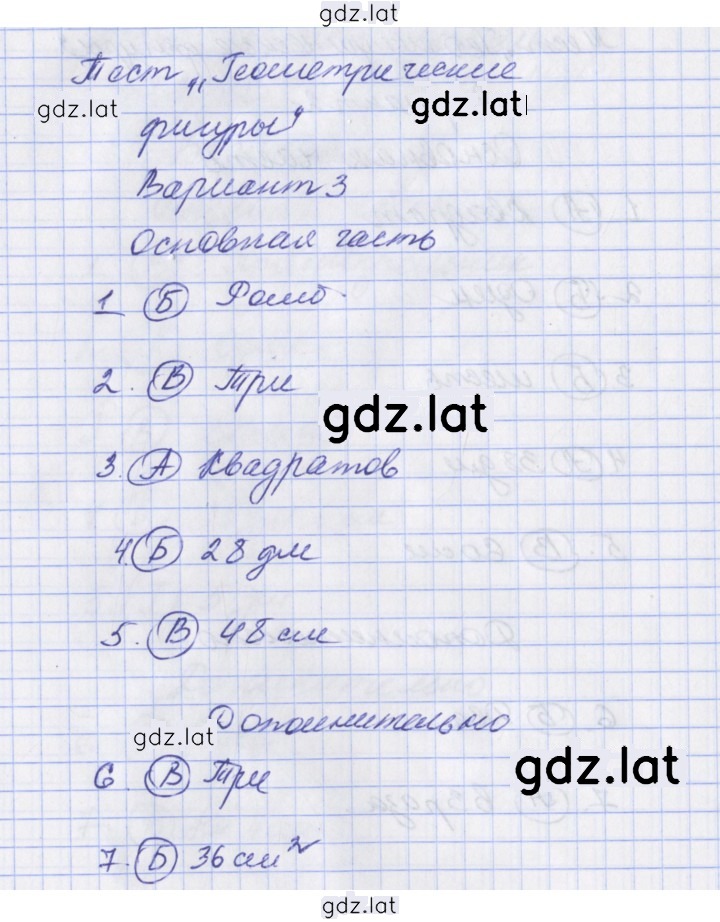 gdz.lat
Тест „Геометрические
gdz.lat
gdz.lat
фигуры"
Вариант 3
Основная часть
1 Б Ромб.
2. В Три
gdz.lat
3. А Квадратов
4. Б 28 дм
5. В 48 см
Дополнительно
gdz.lat
gdz.lat
6. В Три
7. Б 36 см²
gdz.lat